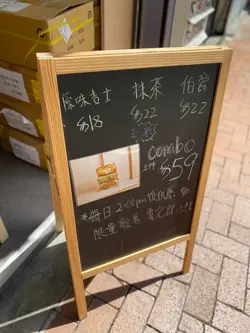 原味吉士 抹茶 伯爵
$18 $22 $22
combo
$59
*每日2:00pm後供應
限量發售 售完即止